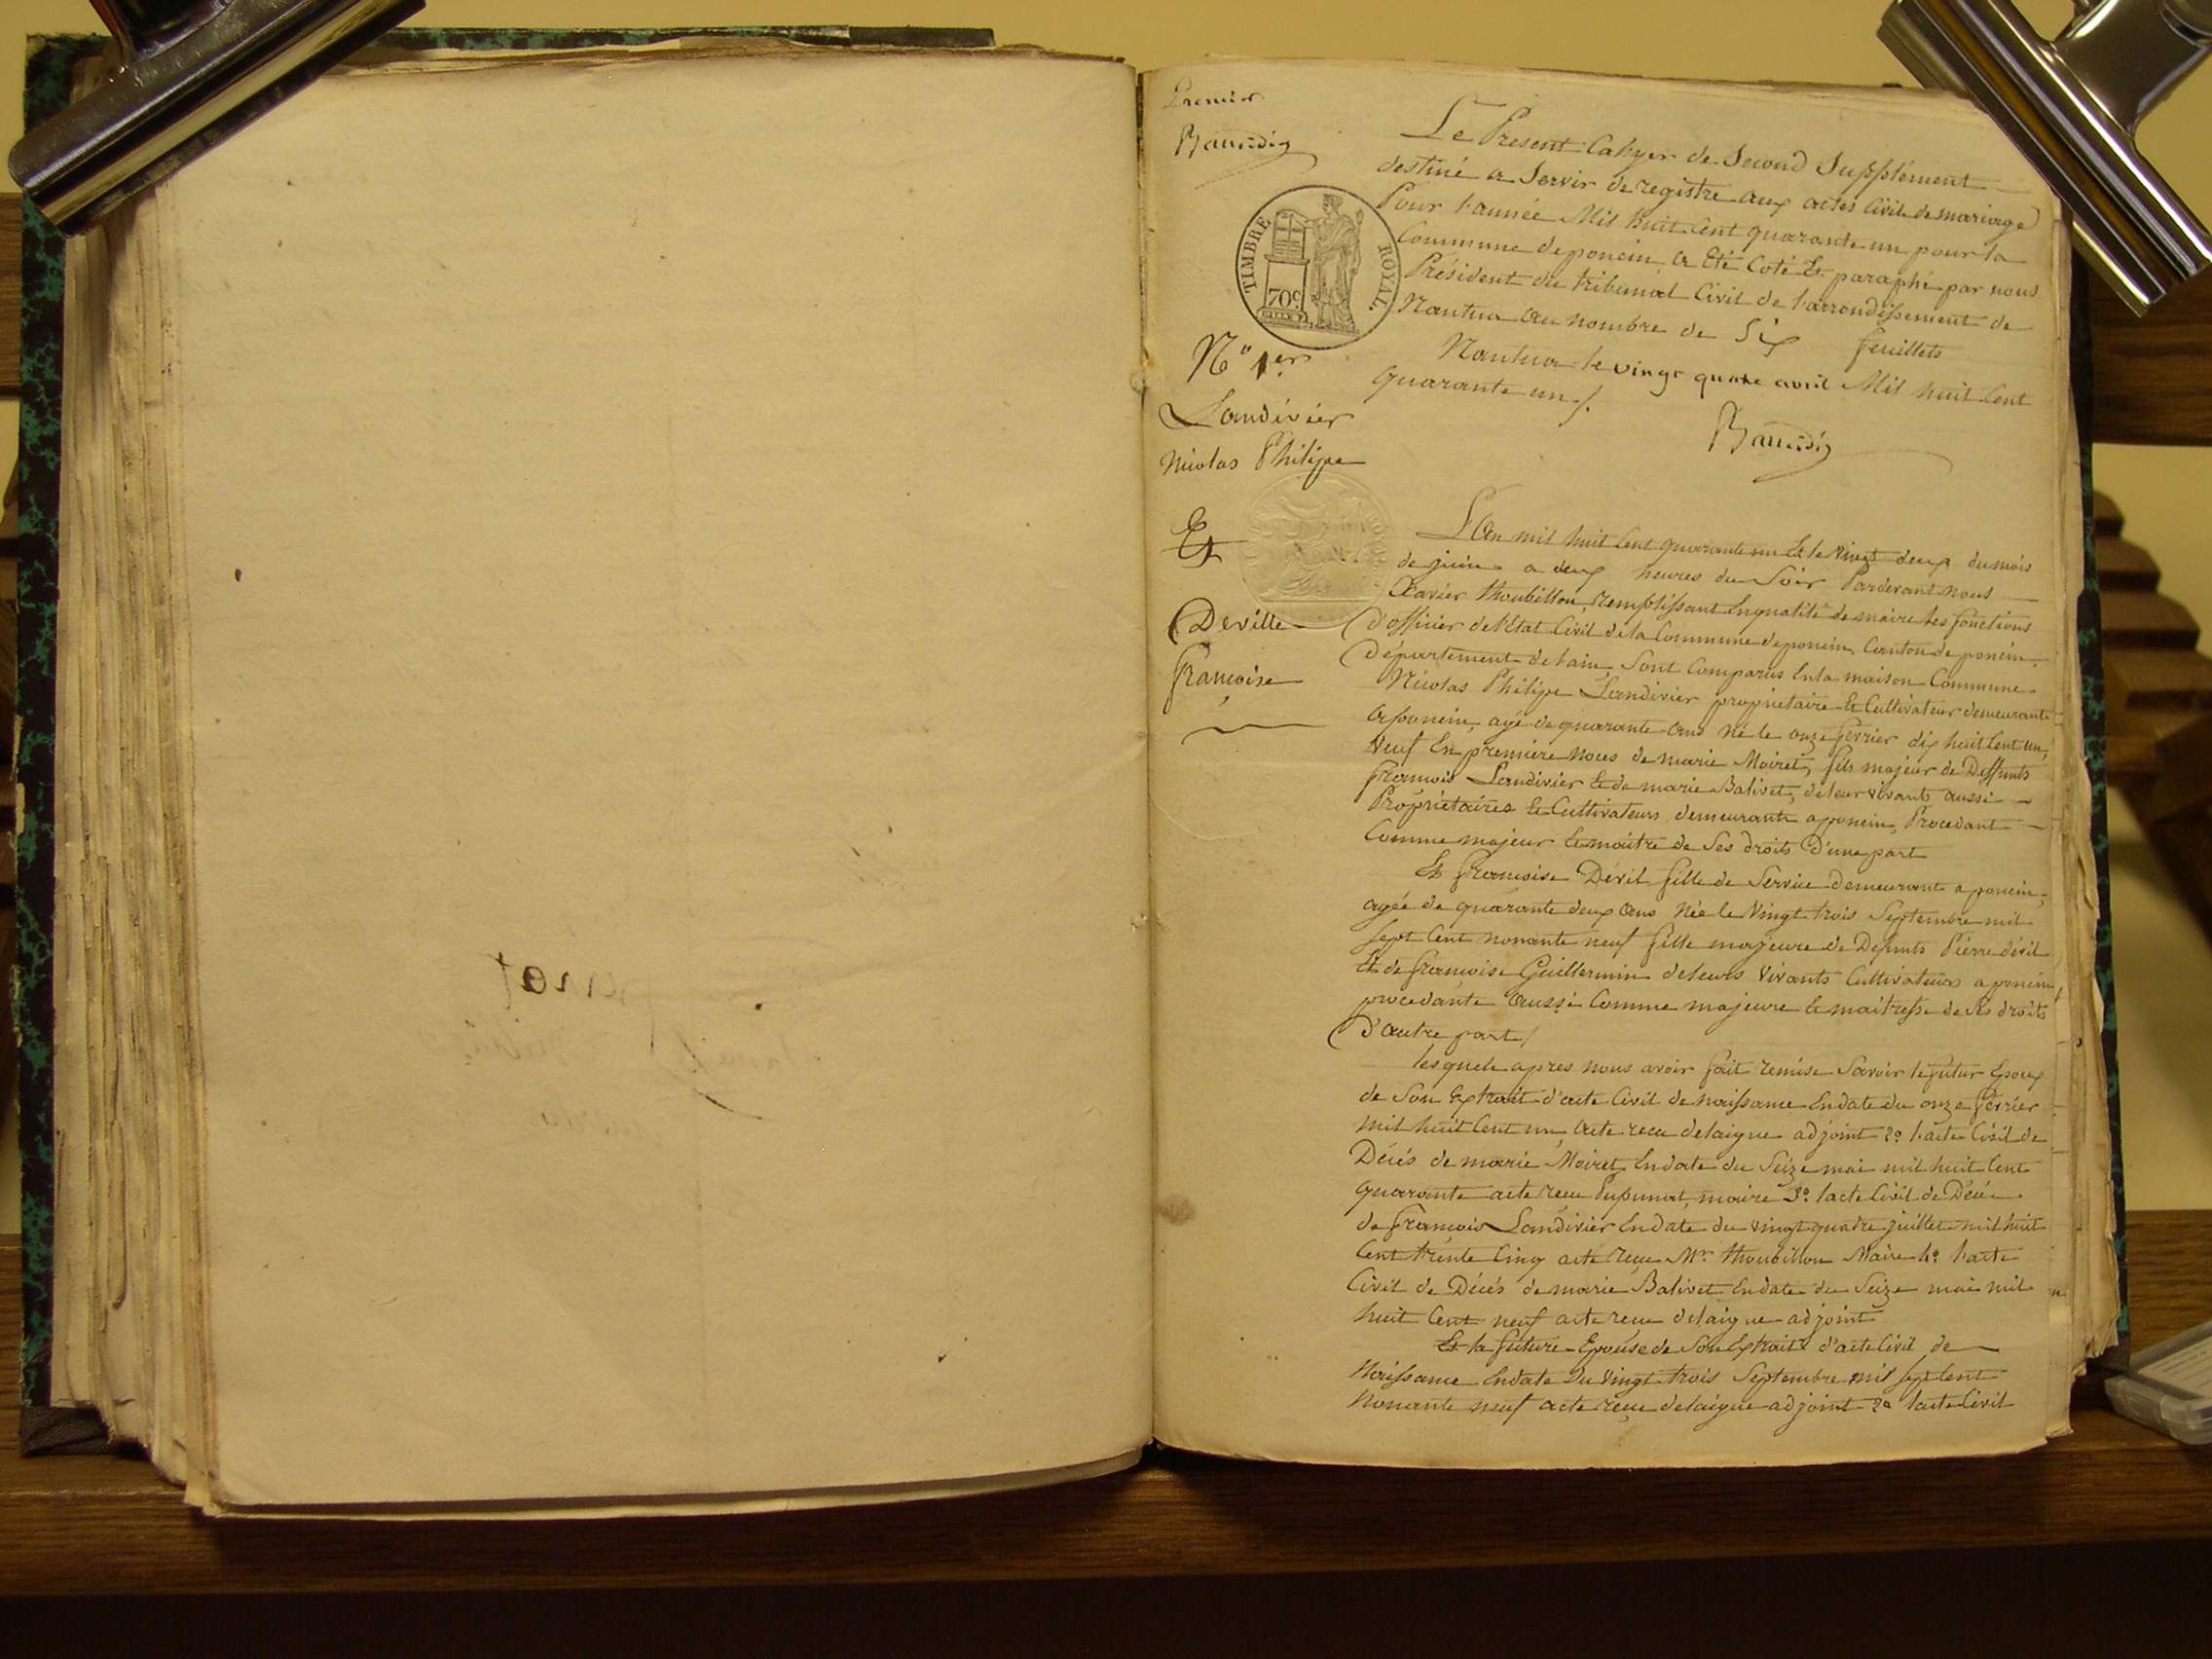 Premier
TIMBRE ROYAL.
70c
Le Présent Cahyer de Second Supplément
destiné a Servir de registre aux actes Civil de mariage
Pour l'année Mil huit Cent quarante un pour la
Commune de poncin, a Eté Coté Et paraphé par nous
Président du tribunal Civil de l'arrondissement de
Nantua au nombre de Six feuillets
Nantua le vingt quatre avril Mil huit Cent
quarante un /.
N° 1er
Landivier
Nicolas Philipe
Et
Deville
françoise
L'an mil huit Cent quarante un Et le Vingt deux du mois
de juin a deux heures du Soir Pardevant nous
Xavier thoubillon, remplissant En qualité de maire les fonctions
d'officier de l'Etat Civil de la Commune de poncin, Canton de poncin,
Département de l'ain, Sont Comparus En la maison Commune
Nicolas Philipe Landivier propriétaire Et Cultivateur demeurant
a poncin, agé de quarante ans né le onze fevrier dix huit Cent un,
Veuf En premiere noces de marie Moiret, fils majeur de Deffunts
françois Landivier Et de marie Balivet, de leur vivants aussi
Propriétaires Et Cultivateurs demeurants a poncin, Procedant
Comme majeur Et maitre de Ses droits D'une part
Et françoise Dévil fille de Service demeurant a poncin,
agée de quarante deux ans Née le Vingt trois Septembre mil
Sept Cent nonante neuf fille majeure de Defunts Piérre dévil
Et de françoise Guillermin de leurs Vivants Cultivateurs a poncin,
procedante aussi Comme majeure Et maitresse de Ses droits
D'autre part /
lesquels apres nous avoir fait remise Savoir le futur Epoux
de Son Extrait d'acte Civil de naissance En date du onze fevrier
mil huit Cent un, acte recu delaigue adjoint 2° l'acte Civil de
Décés de marie Moiret En date du Seize mai mil huit Cent
quarante acte recu maire 3° l'acte Civil de Décés
de françois Landivier En date du vingt quatre juillet mil huit
Cent trente Cinq acte recu Mr. thoubillon Maire 4° l'acte
Civil de Décés de marie Balivet En date du Seize mai mil
huit Cent neuf acte recu delaigue adjoint
Et la future Epouse de Son Extrait d'acte Civil de
Naissance En date du Vingt trois Septembre mil Sept Cent
Nonante neuf acte recu delaigue adjoint 2° l'acte Civil